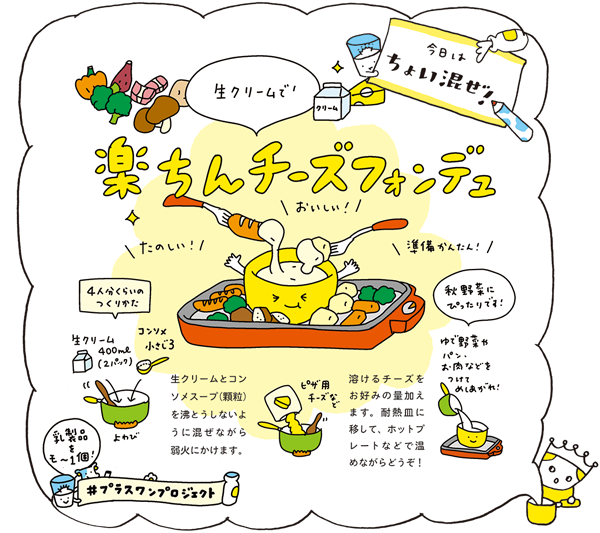 今日は
ちょい混ぜ!
生クリームで!
クリーム
楽ちんチーズフォンデュ
おいしい!
たのしい!
準備かんたん!
4人分くらいの
つくりかた
生クリーム
400ml
(2パック)
コンソメ
小さじ3
よわび
生クリームとコン
ソメスープ(顆粒)
を沸とうしないよ
うに混ぜながら
弱火にかけます。
ピザ用
チーズなど
溶けるチーズを
お好みの量加え
ます。耐熱皿に
移して、ホットプ
レートなどで温
めながらどうぞ!
秋野菜に
ぴったりです!
ゆで野菜や
パン、
お肉などを
つけて
めしあがれ!
乳製品
を
も〜1個!
#プラスワンプロジェクト